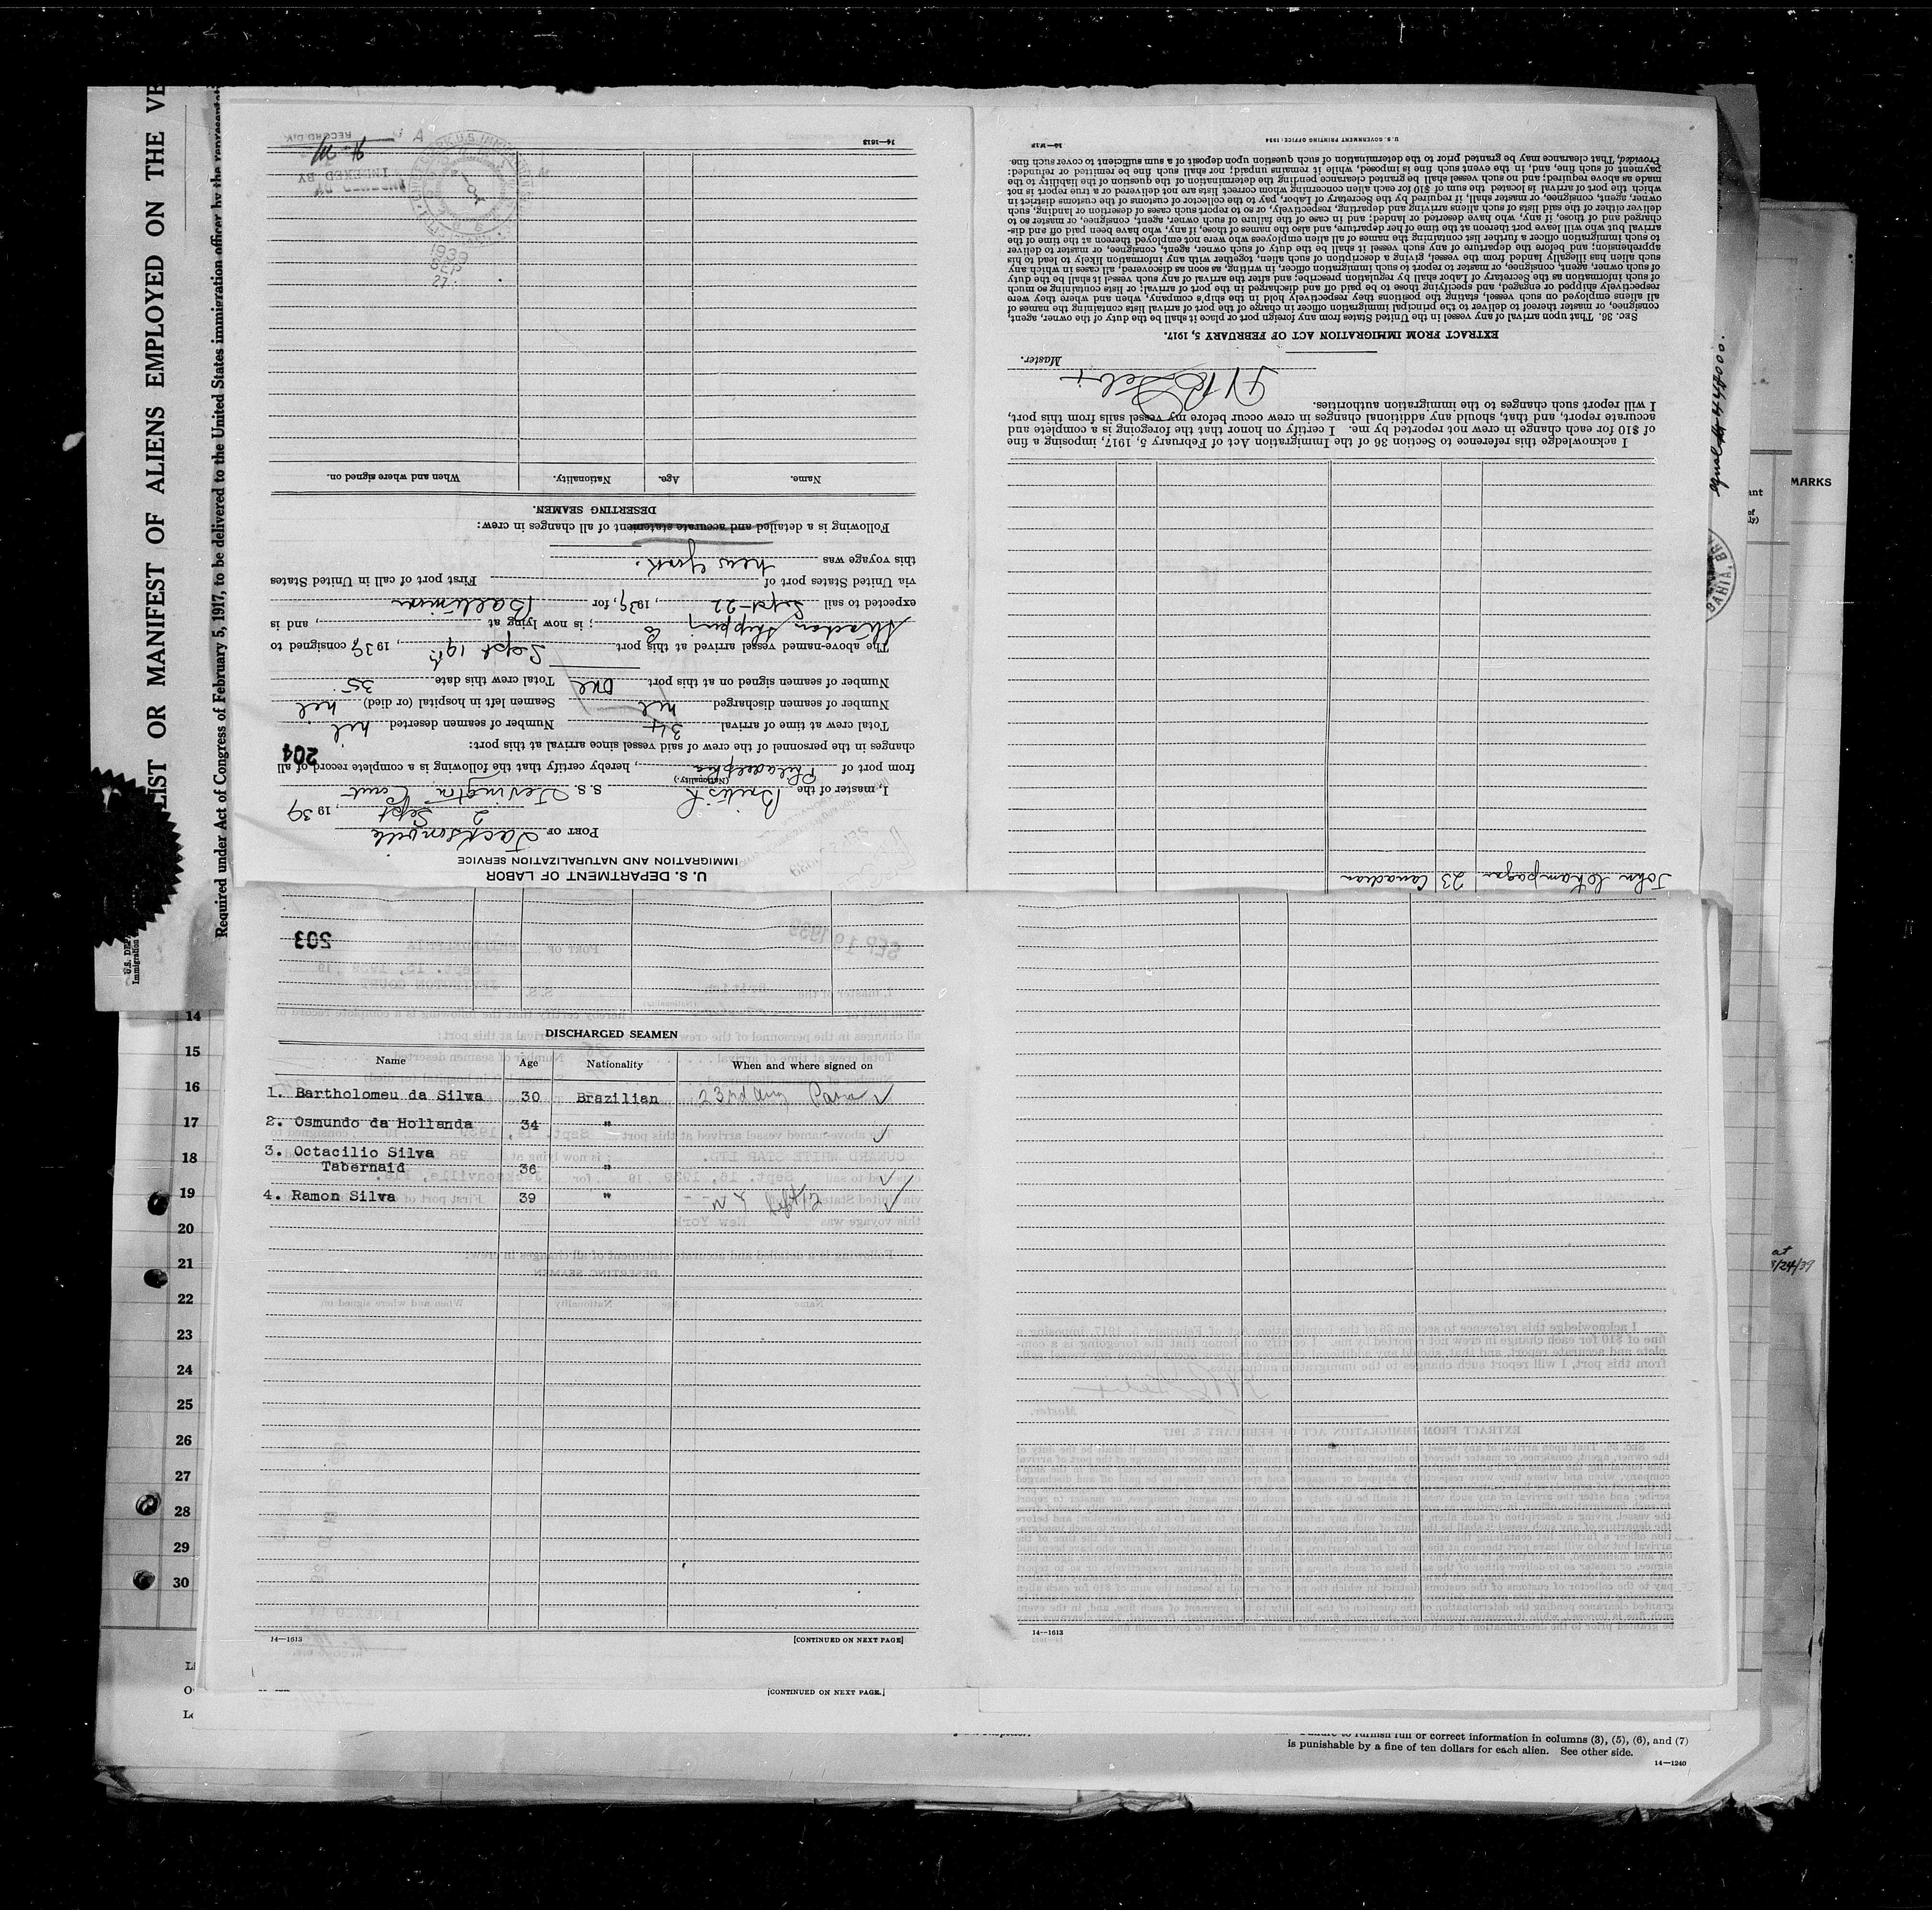 LIST OR MANIFEST OF ALIENS EMPLOYED ON THE VE
Required under Act of Congress of February 5, 1917, to be delivered to the United States immigration officer by the representati
U. S. DEPARTMENT OF LABOR
IMMIGRATION AND NATURALIZATION SERVICE
PORT OF Jacksonville
2 Sept, 1939
I, master of the British S. S. Tevington Court
(Nationality.)
from port of Philadelphia, hereby certify that the following is a complete record of all
changes in the personnel of the crew of said vessel since arrival at this port:
204
Total crew at time of arrival 34 Number of seamen deserted nil
Number of seamen discharged nil Seamen left in hospital (or died) nil
Number of seamen signed on at this port one Total crew this date 35
The above-named vessel arrived at this port Sept 19th, 1939 consigned to
Strachan Shipping Co; is now lying at, and is
expected to sail Sept-22, 1939, for Baltimore
via United States port of First port of call in United States
this voyage was New York.
Following is a detailed and accurate statement of all changes in crew:
DESERTING SEAMEN.
Name. Age. Nationality. When and where signed on.
1939
SEP
21
INDEXED BY
RECORD DIV.
14—1613
John Champagne 23 Canadian
I acknowledge this reference to Section 36 of the Immigration Act of February 5, 1917, imposing a fine
of $10 for each change in crew not reported by me. I certify on honor that the foregoing is a complete and
accurate report, and that, should any additional changes in crew occur before my vessel sails from this port,
I will report such changes to the immigration authorities.
Master.
EXTRACT FROM IMMIGRATION ACT OF FEBRUARY 5, 1917.
SEC. 36. That upon arrival of any vessel in the United States from any foreign port or place it shall be the duty of the owner, agent,
consignee, or master thereof to deliver to the principal immigration officer in charge of the port of arrival lists containing the names of
all aliens employed on such vessel, stating the positions they respectively hold in the ship's company, when and where they were
respectively shipped or engaged, and specifying those to be paid off and discharged in the port of arrival; or lists containing so much
of such information as the Secretary of Labor shall by regulation prescribe; and after the arrival of any such vessel it shall be the duty
of such owner, agent, consignee, or master to report to such immigration officer, in writing, as soon as discovered, all cases in which any
such alien has illegally landed from the vessel, giving a description of such alien, together with any information likely to lead to his
apprehension; and before the departure of any such vessel it shall be the duty of such owner, agent, consignee, or master to deliver
to such immigration officer a further list containing the names of all alien employees who were not employed thereon at the time of the
arrival but who will leave port thereon at the time of her departure, and also the names of those, if any, who have been paid off and dis-
charged and of those, if any, who have deserted or landed; and in case of the failure of such owner, agent, consignee, or master so to
deliver either of the said lists of such aliens arriving and departing, respectively, or so to report such cases of desertion or landing, such
owner, agent, consignee, or master shall, if required by the Secretary of Labor, pay to the collector of customs of the customs district in
which the port of arrival is located the sum of $10 for each alien concerning whom correct lists are not delivered or a true report is not
made as above required; and no such vessel shall be granted clearance pending the determination of the question of the liability to the
payment of such fine, and, in the event such fine is imposed, while it remains unpaid; nor shall such fine be remitted or refunded:
Provided, That clearance may be granted prior to the determination of such question upon deposit of a sum sufficient to cover such fine.
U. S. GOVERNMENT PRINTING OFFICE: 1934
203
DISCHARGED SEAMEN
Name Age Nationality When and where signed on
1. Bartholomeu da Silva 30 Brazilian 23rd Aug Para ✓
2. Osmundo da Hollanda 34 " ✓
3. Octacilio Silva
Tabernaid 36 " ✓
4. Ramon Silva 39 " N Y Sept/12 ✓
14—1613 [CONTINUED ON NEXT PAGE]
14—1613
[CONTINUED ON NEXT PAGE.]
14
15
16
17
18
19
20
21
22
23
24
25
26
27
28
29
30
MARKS
BAHIA, BR
at
/24/39
Failure to furnish full or correct information in columns (3), (5), (6), and (7)
is punishable by a fine of ten dollars for each alien. See other side.
14—1240